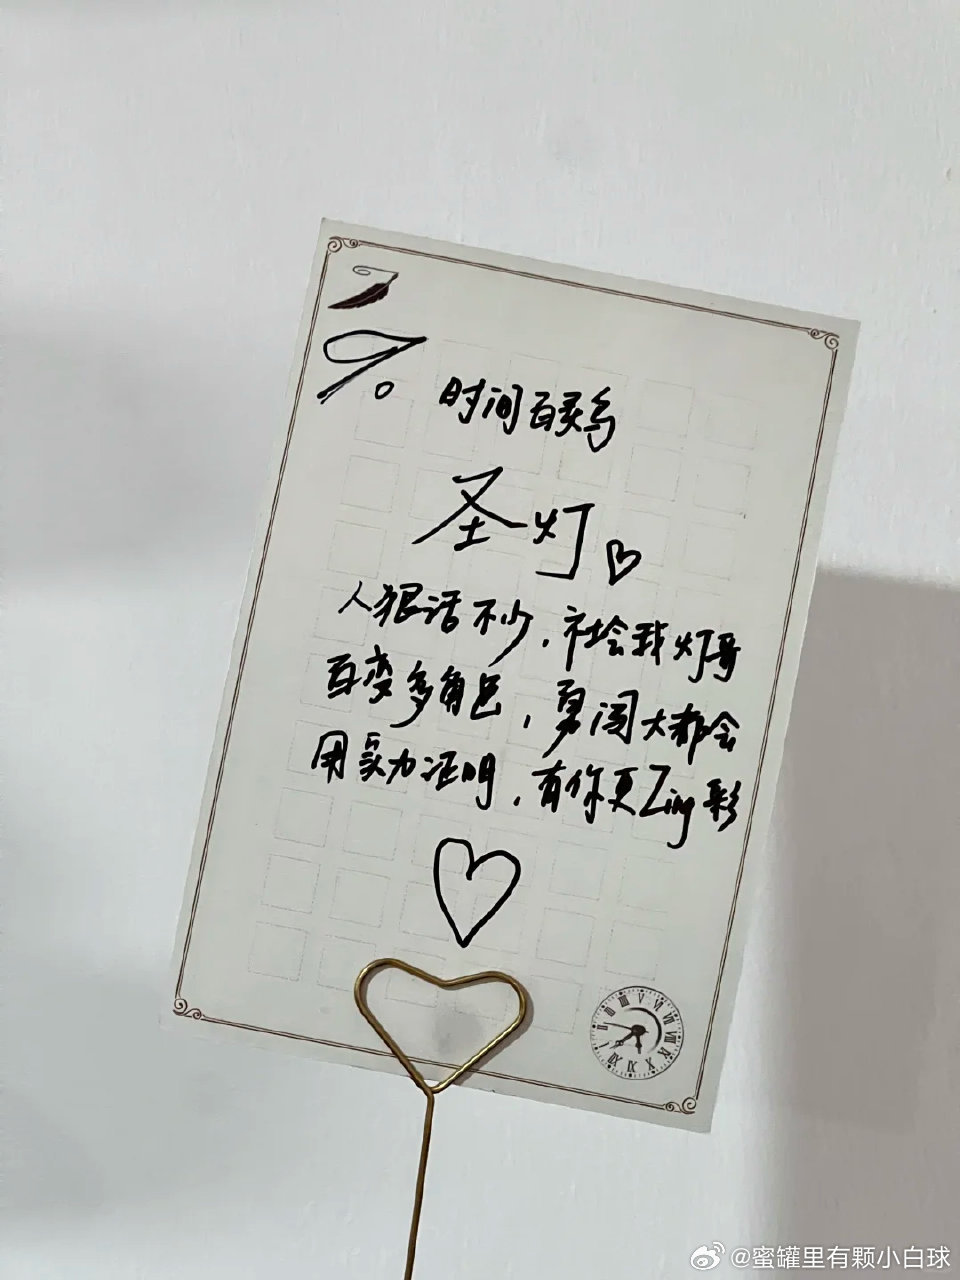 时间百灵鸟
圣灯
人狠话不少，社会我灯哥
百变多角色，勇闯大都会
用实力证明，有你更Zing彩
@蜜罐里有颗小白球